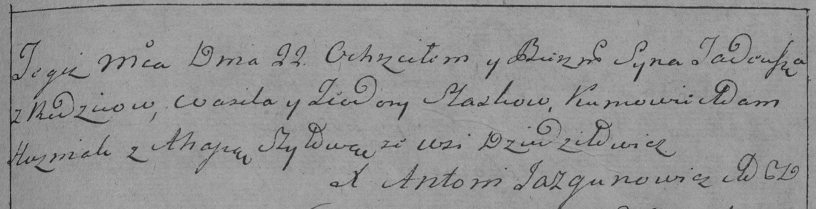 Tegiż Mca Dnia 22. Ochrzciłem y Bierzm Syna Tadeusza
z Rodzicow, Wasila y Teodory Staskow, Kumowie Adam
Kuzmiak z Ahapą ze wsi Dziedziłowicz
X Antoni Jazgunowicz